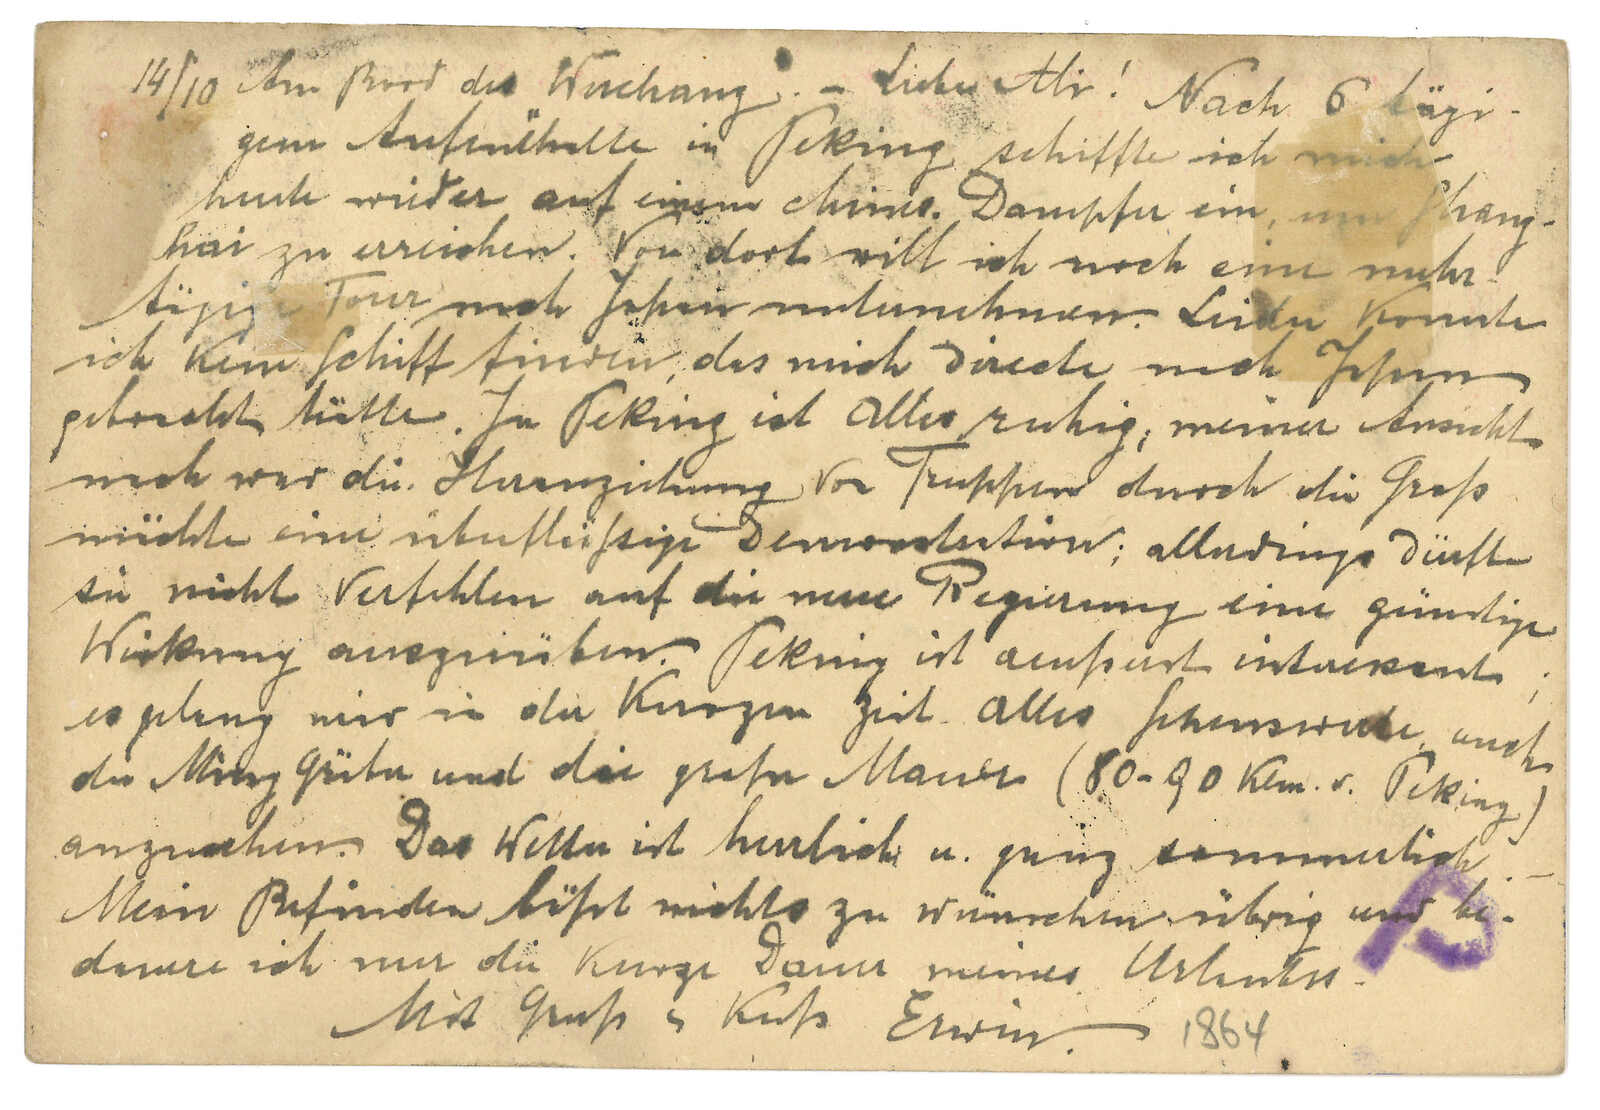 14/10 Am Bord des Wuchang. – Lieber Ali! Nach 6 tägi-
gem Aufenthalte in Peking schiffte ich mich
heute wieder auf einem chines. Dampfer ein, um Shang-
hai zu erreichen. Von dort will ich noch eine mehr
tägige Tour nach Japan unternehmen. Leider konnte
ich kein Schiff finden, das mich directe nach Japan
gebracht hätte. In Peking ist alles ruhig; meiner Ansicht
nach war die Heranziehung von Truppen durch die Groß
mächte eine überflüßsige Demonstration; allerdings dürfte
sie nicht verfehlen auf die neue Regierung eine günstige
Wirkung auszuüben. Peking ist aeußerst interessant;
es gelang mir in der kurzen Zeit alles Sehenswerte, auch
die Ming Gräber und die große Mauer (80-90 Klm. v. Peking)
anzusehen. Das Wetter ist herrlich u. ganz sommerlich. –
Mein Befinden läßt nichts zu wünschen übrig und be-
dauere ich nur die kurze Dauer meines Urlaubes.
Mit Gruß u Kuß Erwin.
1864